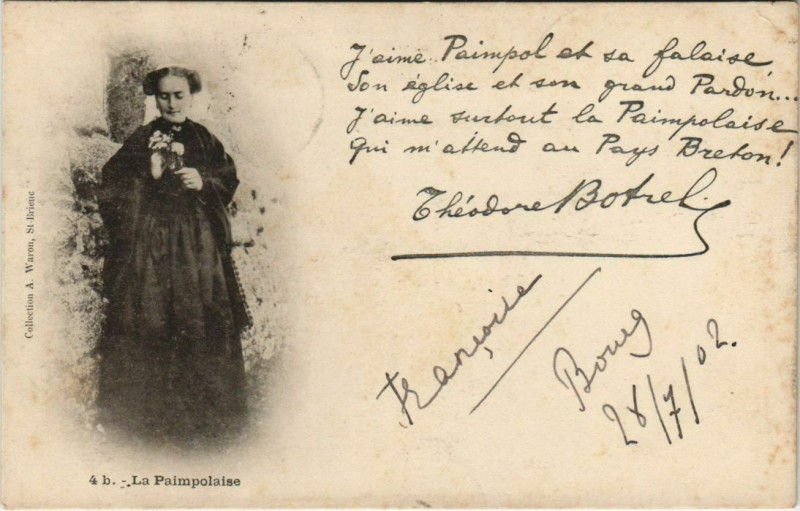 J'aime Paimpol et sa falaise
Son église et son grand Pardon...
J'aime surtout la Paimpolaise
Qui m'attend au Pays Breton!
Théodore Botrel
Françoise
Bourg
28/7/02.
Collection A. Waron, St-Brieuc
4 b. - La Paimpolaise